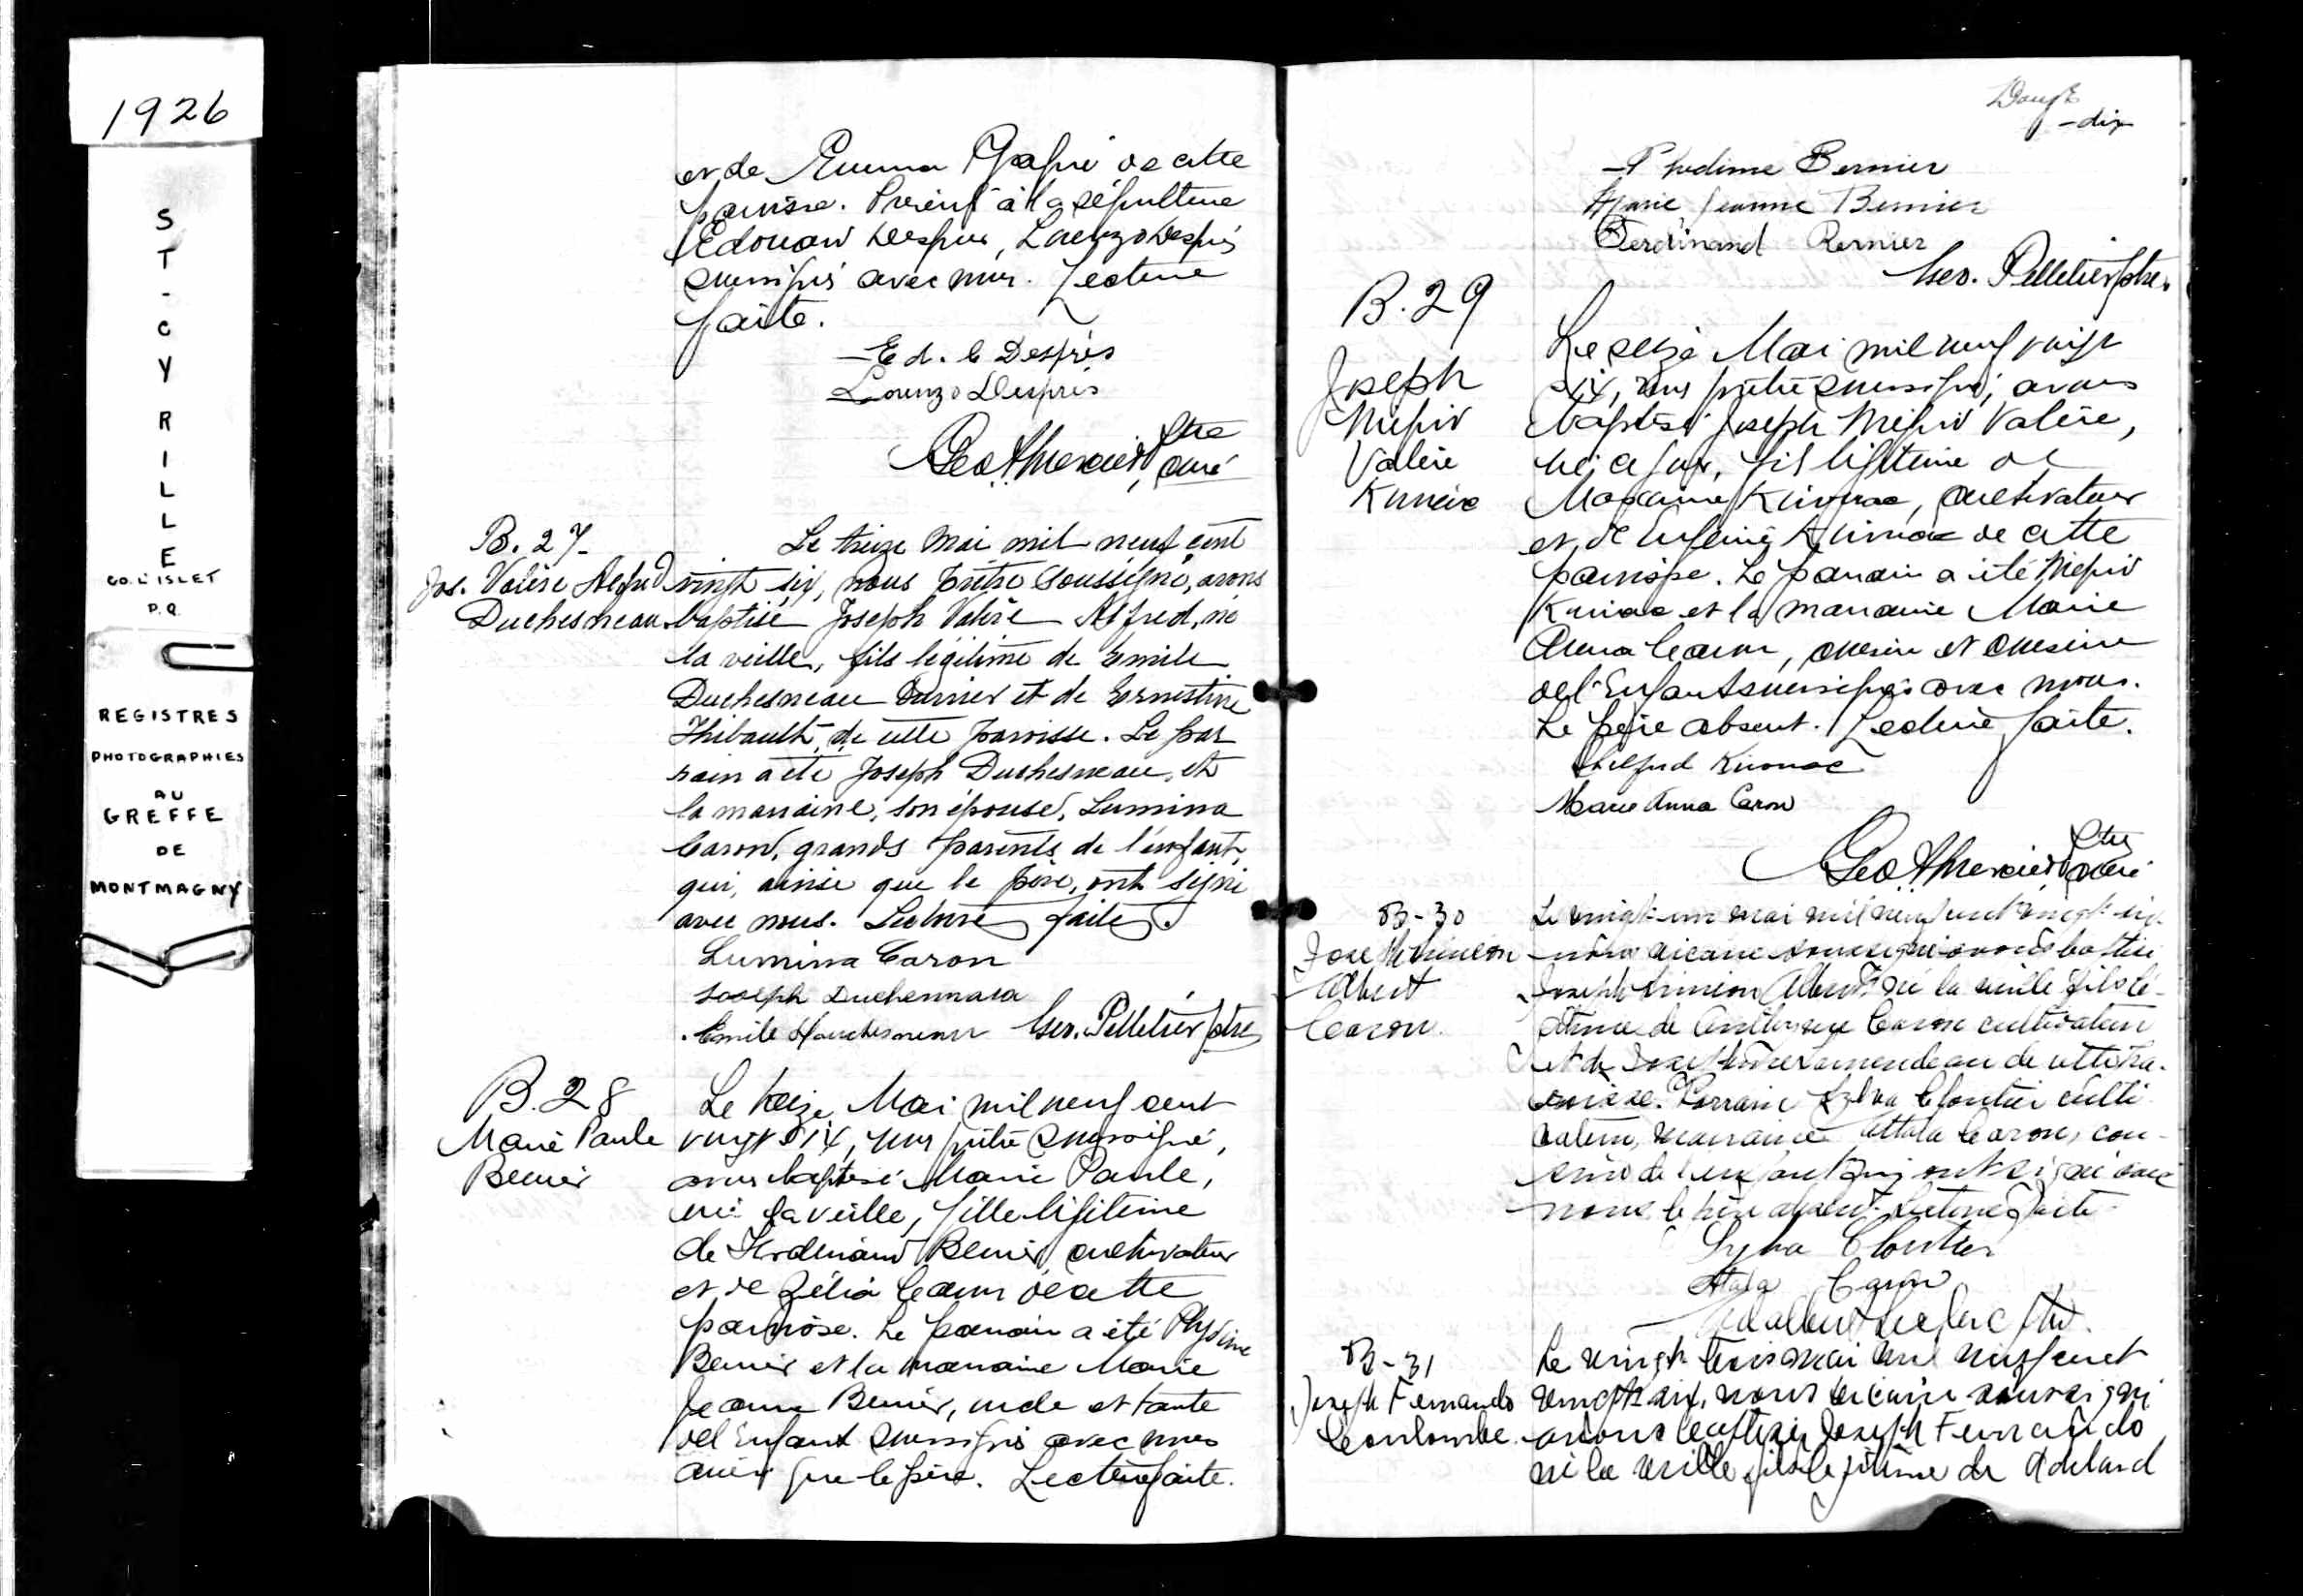 1926
ST-CYRILLE
CO. L'ISLET
P.Q.
REGISTRES
PHOTOGRAPHIES
AU
GREFFE
DE
MONTMAGNY
et de Emma de cette
paroisse. Présents à la sépulture
Edouard Després, Lorenzo Després
soussignés avec nous. Lecture
faite.
Ed. Després
Lorenzo Després
Geo. A. Mercier, ptre curé
B. 27-
Jos. Valère Alfred
Duchesneau
Le treize Mai mil neuf cent
vingt six, nous prêtre soussigné, avons
baptisé Joseph Valère Alfred, né
la veille, fils légitime de Emile
Duchesneau ouvrier et de Ernestine
Thibault, de cette paroisse. Le par
rain a été Joseph Duchesneau, et
la marraine, son épouse, Lumina
Caron, grands parents de l'enfant,
qui, ainsi que le père, ont signé
avec nous. Lecture faite.
Lumina Caron
Joseph Duchesneau
Emile Duchesneau Ger. Pelletier ptre
B. 28
Marie Paule
Bernier
Le treize Mai mil neuf cent
vingt six, nous prêtre soussigné,
avons baptisé Marie Paule,
née la veille, fille légitime
de Ferdinand Bernier, cultivateur
et de Zélia Caron de cette
paroisse. Le parrain a été
Bernier et la marraine Marie
Jeanne Bernier, oncle et tante
de l'Enfant soussignés avec nous
ainsi que le père. Lecture faite.
-dix
Phydime Bernier
Marie Jeanne Bernier
Ferdinand Bernier
Ger. Pelletier ptre.
B. 29
Joseph
Valère
Le seize Mai mil neuf vingt
six, nous prêtre soussigné, avons
baptisé Joseph Valère,
né ce jour, fils légitime de
cultivateur
et de de cette
paroisse. Le parrain a été
et la marraine Marie
Anna Caron, cousin et cousine
de l'Enfant soussignés avec nous.
Le père absent. Lecture faite.
Marie Anna Caron
Geo. A. Mercier ptre curé
B-30
Joseph Siméon
Albert
Caron.
Le vingt-un mai mil neuf cent vingt-six
nous vicaire soussigné avons baptisé
Joseph Siméon Albert né la veille fils lé-
gitime de Caron cultivateur
et de de cette pa-
roisse. Parrain Sylva Cloutier culti
vateur, marraine Attala Caron, cou-
sins de l'enfant qui ont signé avec
nous le père absent. Lecture faite.
Sylva Cloutier
Attala Caron
Adalbert Leclerc ptre.
B-31
Joseph Fernando
Coulombe.
Le vingt-trois mai mil neuf cent
vingt-six, nous vicaire soussigné
avons baptisé Joseph Fernando
né la veille fils légitime de Adelard